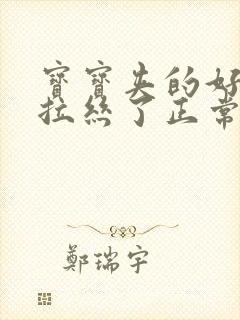 寶寶失的好
拉絲了正常
鄭瑞宇